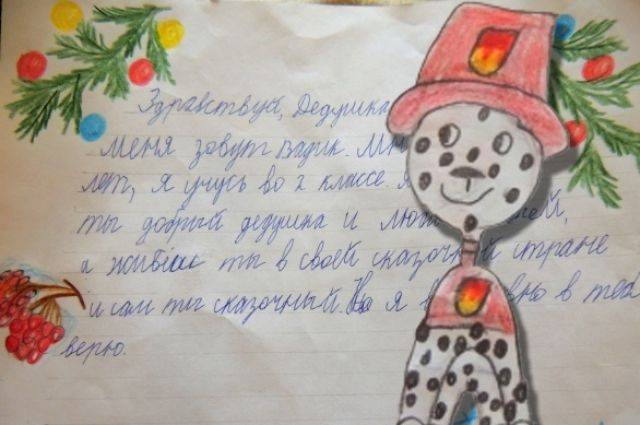 Здравствуй, Дедушка
Меня зовут Вадик.
лет, я учусь во 2 классе. я
ты добрый дедушка и
а живёшь ты в своей сказочный стране
и сам ты сказочный. Но я в тебя
верю.